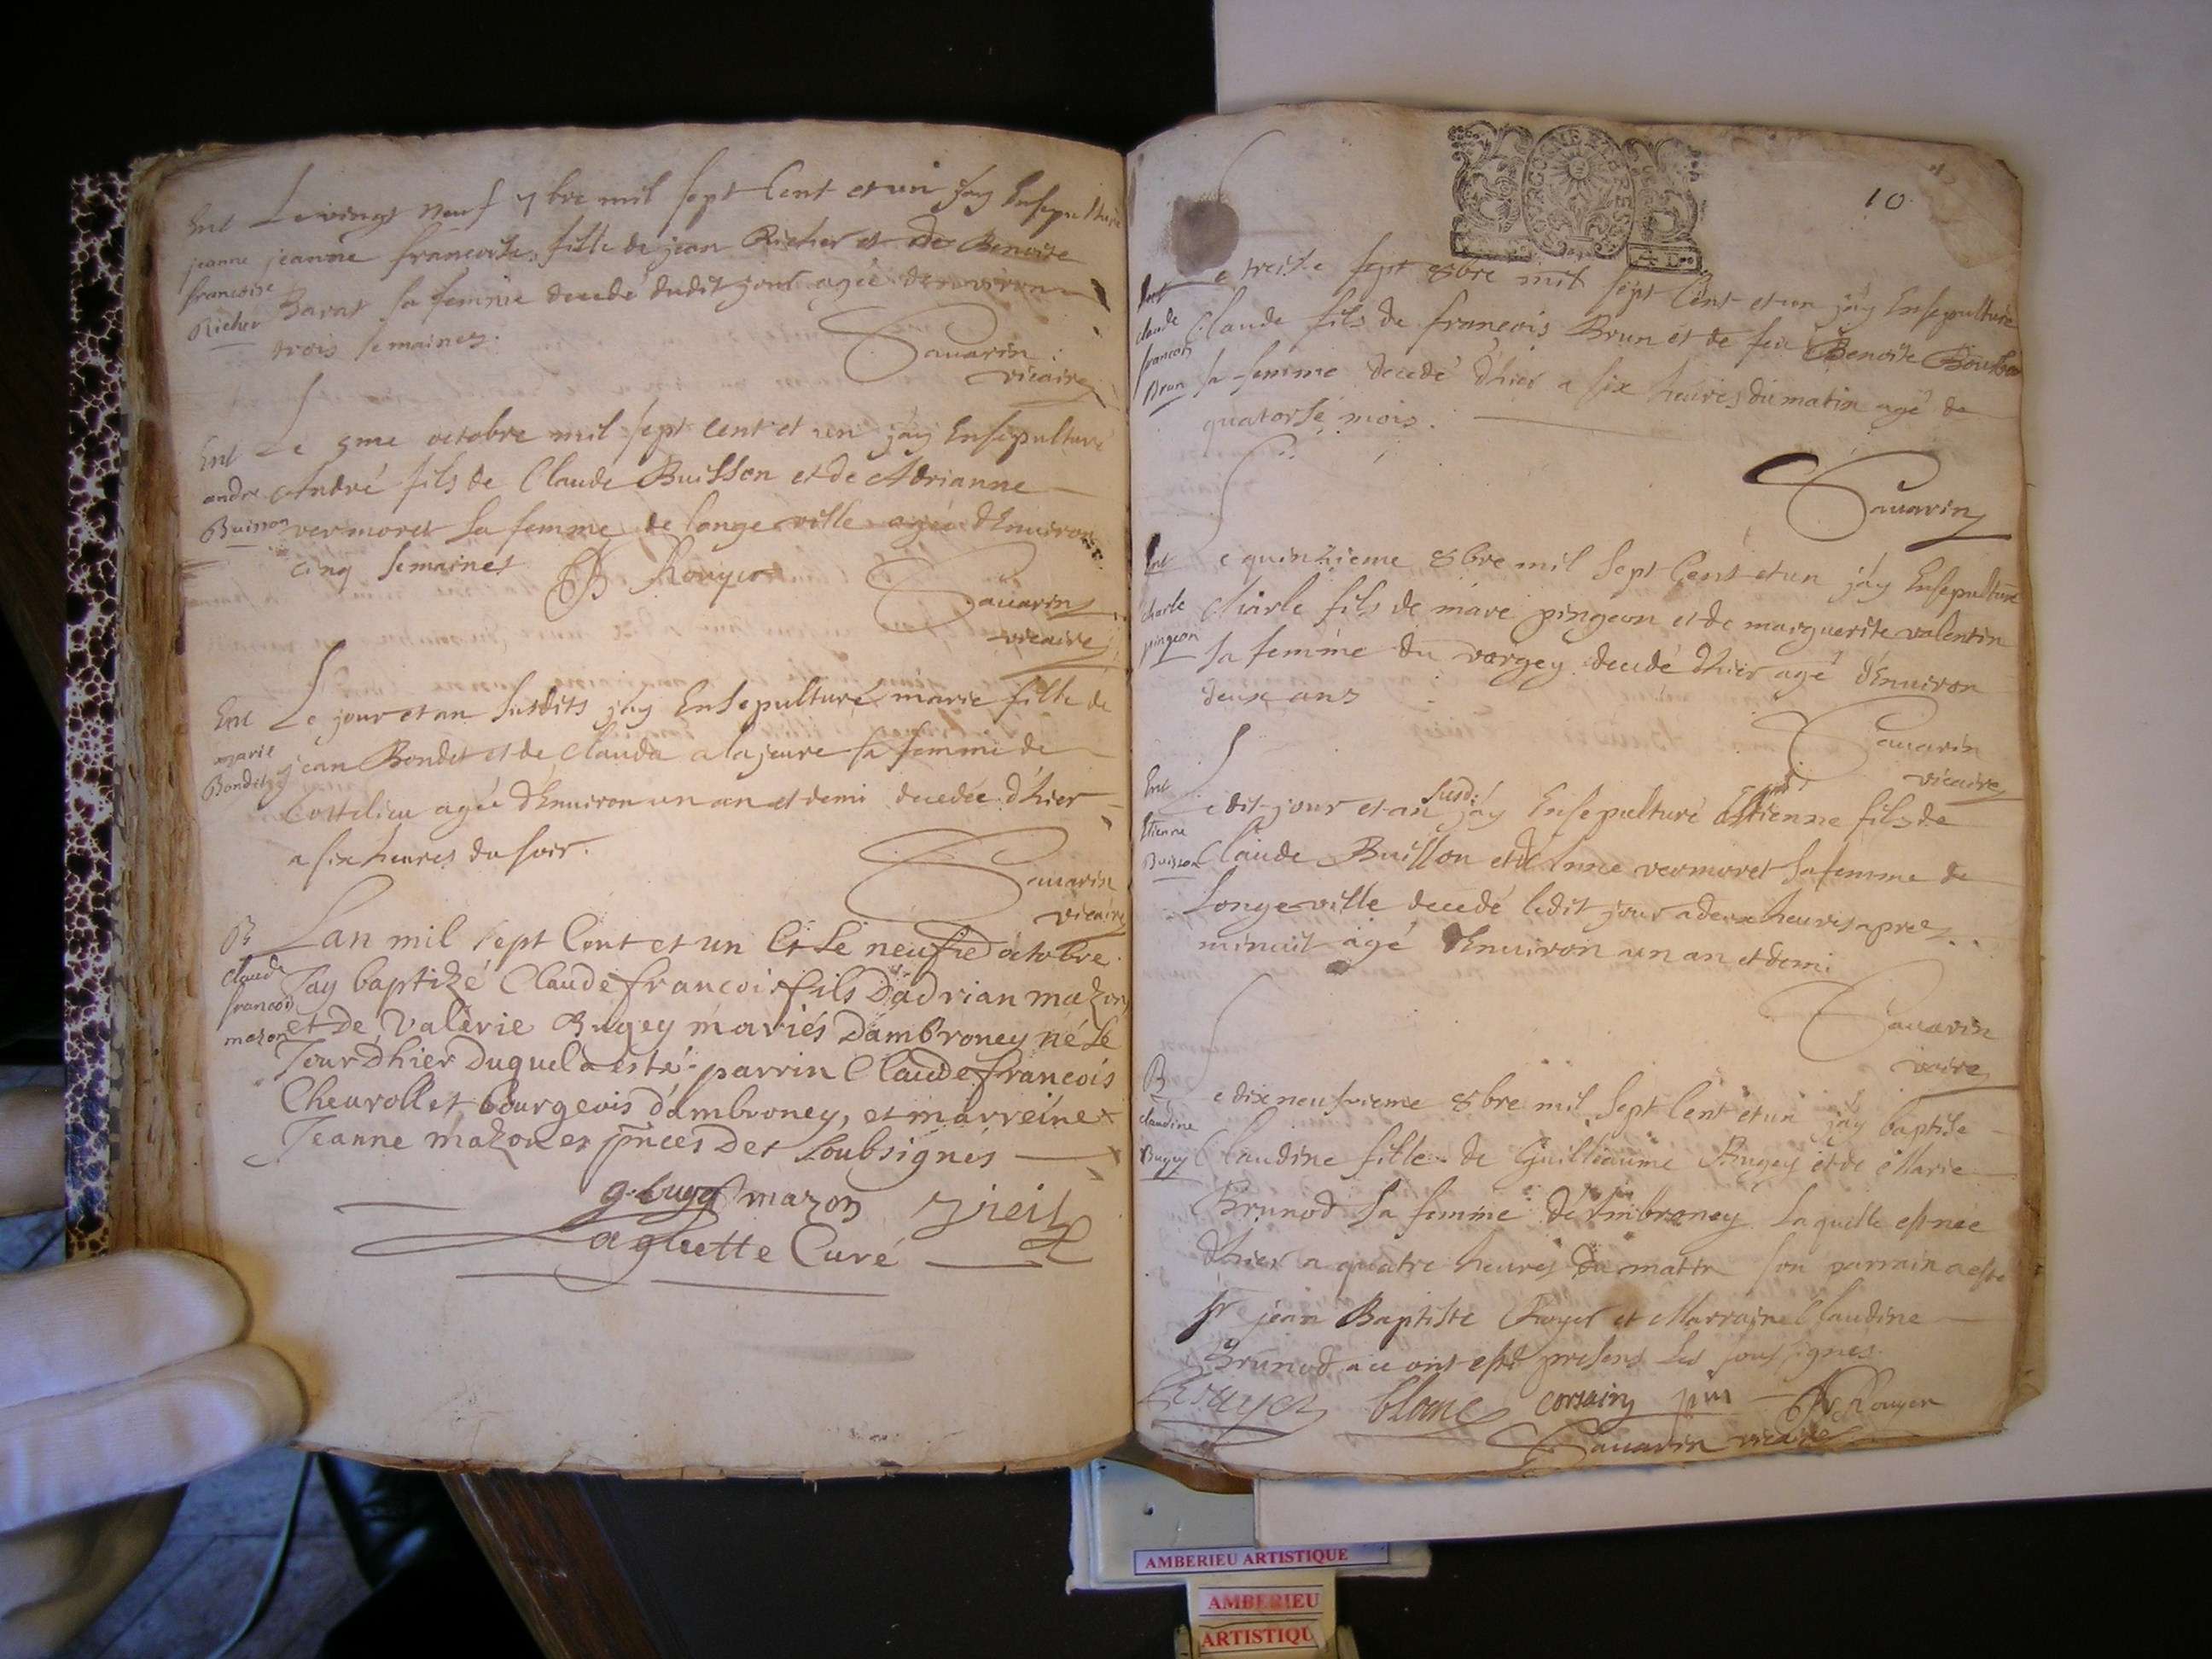 Ent
jeanne
francoise
Richer
Le vingt neuf 7bre mil sept Cent et un jay Ensepulturé
jeanne francoise fille de jean Richer et de Benoite
Barat sa femme decedé dudit jour agée denviron
trois semaines.
Savarin
vicaire
Ent
andre
Buisson
Le 5me octobre mil sept cent et un jáy Ensepulturé
André fils de Claude Buisson et de Adrianne
vermoret sa femme de longeville agée d'Enuiron
cinq semaines
Rouyer
Savarin
vicaire
Ent
marie
Bondet
Le jour et an susdits jáy Ensepulturé marie fille de
jean Bondet et de Clauda alajeure sa femme de
Cottelieu agée d'Enuiron un an et demi decedée d'hier
a six heures du soir.
Savarin
vicaire
B
claude
francois
mazon
Lan mil sept Cent et un Et Le neufie octobre
Jay baptizé Claude francois fils Dadrian mazon
et de Valerie Bugey mariés Dambroney né Le
Jour Dhier Duquel a esté parrin Claude francois
Cheurollet bourgeois d'ambroney, et marreine
Jeanne mazon es pnces Des soubsignés
g. bugey mazon Vieil
Laguette Curé
10
GEN
4 D.
Ent
claude
francois
Brun
Le treise sept 8bre mil sept Cent et un jáy Ensepulturé
Claude fils de francois Brun et de feu Benoite Bourbon
sa femme decedé d'hier a six heures du matin agé de
quatorse mois.
Savarin
Ent
charle
pingeon
Le quinzieme 8bre mil sept Cent et un jáy Ensepulturé
Charle fils de marc pingeon et de marguerite valentin
sa femme du vorgey decedé d'hier agé d'Enuiron
deux ans
Savarin
vicaire
Ent
Etienne
Buisson
Ledit jour et an susd: jáy Ensepulturé Estienne fils de
Claude Buisson et d'Anne vermoret sa femme de
Longeville decedé ledit jour a deux heures apres
minuit agé d'Enuiron un an et demi
Savarin
vicaire
B
claudine
Bugey
Le dixneufvieme 8bre mil sept Cent et un jáy baptise
Claudine fille de Guilleaume Bugey et de Marie
Brunod sa femme d'Ambroney Laquelle est née
d'hier a quatre heures du matin son parrain a esté
sr jean Baptiste Rouyer et Marraine Claudine
Brunod a ce ont esté presens les sous signes.
Rouyer blanc corsain pnt Rouyer
Savarin vicaire
AMBERIEU ARTISTIQUE
AMBERIEU
ARTISTIQU